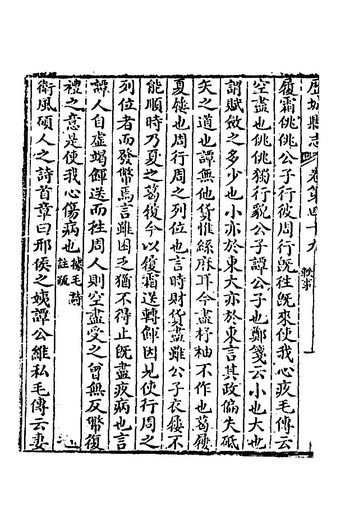 歷城縣志 卷第四十九 軼事 一
履霜佻佻公子行彼周行既往既來使我心疚毛傳云
空盡也佻佻獨行貌公子譚公子也鄭箋云小也大也
謂賦斂之多少也小亦於東大亦於東言其政偏失砥
矢之道也譚無他貨惟絲麻耳今盡杼柚不作也葛屨
夏屨也周行周之列位也言時財貨盡雖公子衣屨不
能順時乃夏之葛屨今以履霜送轉餫因見使行周之
列位者而發幣焉言雖困乏猶不得止既盡疚病也言
譚人自虛竭餫送而往周人則空盡受之曾無反幣復
禮之意是使我心傷病也 據毛詩註疏
衛風碩人之詩首章曰邢侯之姨譚公維私毛傳云妻